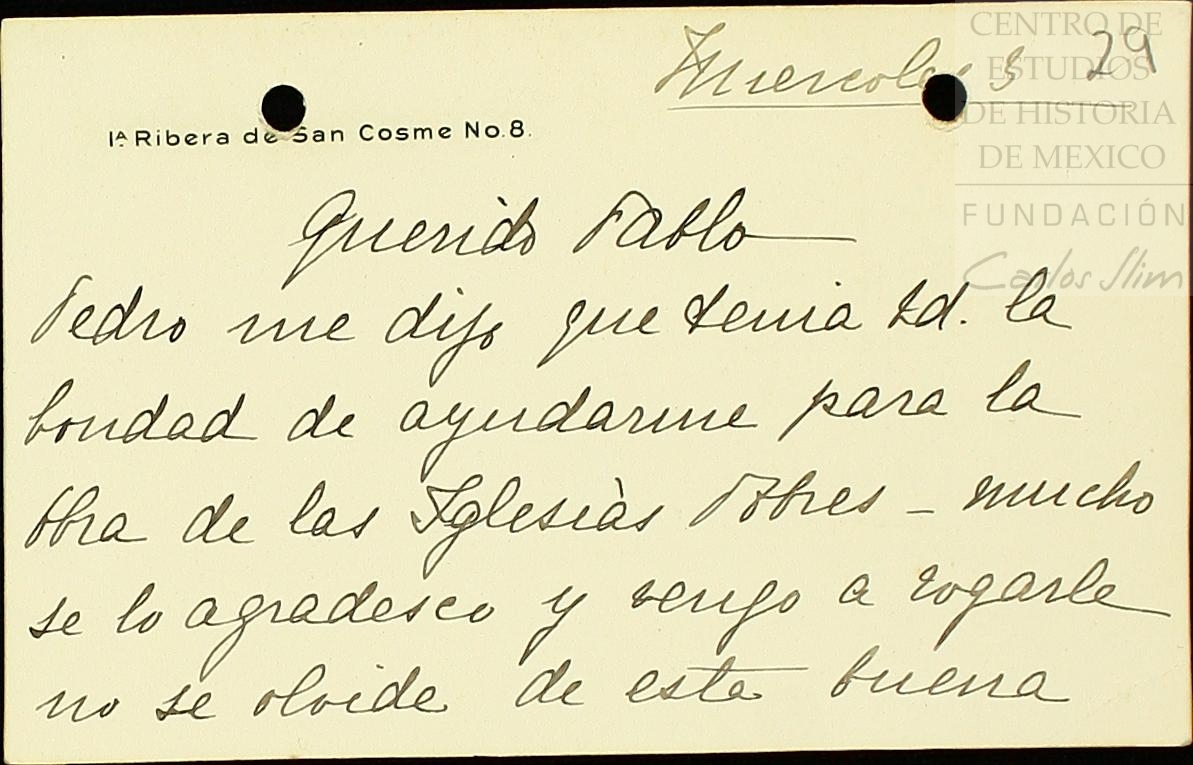 Miercoles 3
29
CENTRO DE
ESTUDIOS
DE HISTORIA
DE MEXICO
FUNDACIÓN
Carlos Slim
1ª Ribera de San Cosme No. 8.
Querido Pablo
Pedro me dijo que tenia Ud. la
bondad de ayudarme para la
Obra de las Iglesiàs Pobres - mucho
se lo agradesco y vengo a rogarle
no se olvide de esta buena